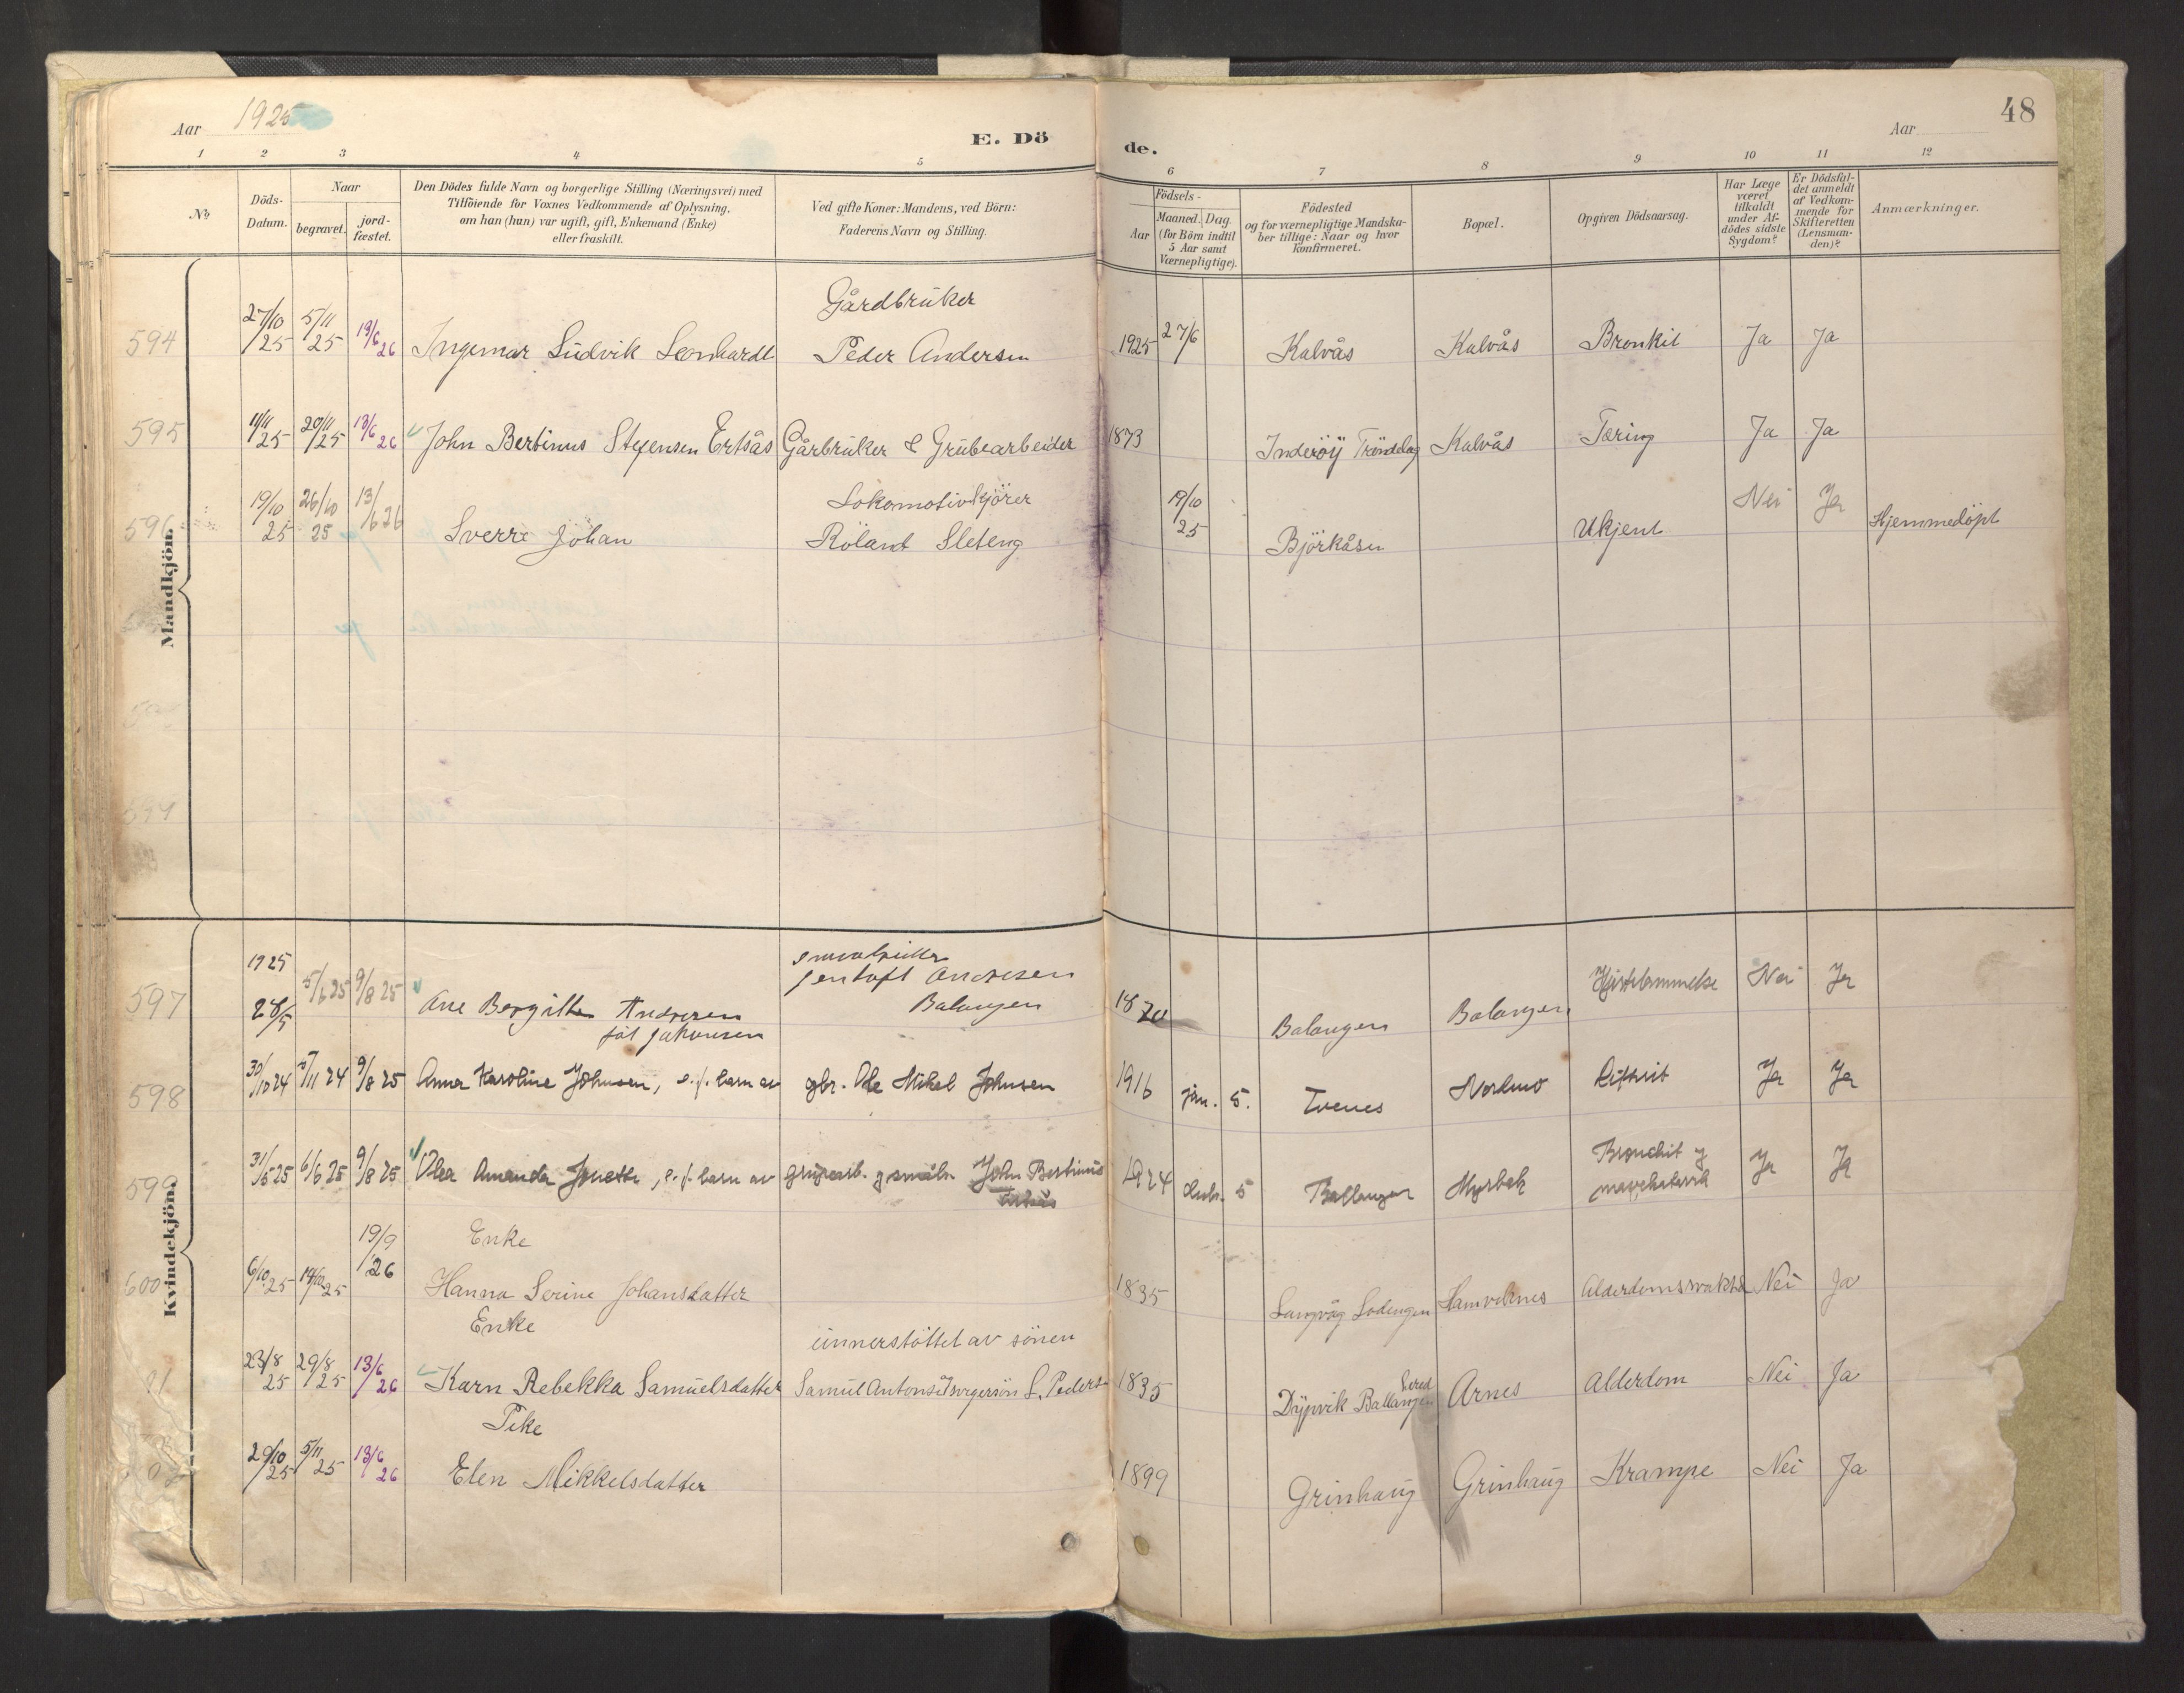 Aar 1925
E. Dö
de.
Aar
48
1 2 3 4 5 6 7 8 9 10 11 12
No
Döds-
Datum.
Naar
begravet.
jord-
fæstet.
Den Dödes fulde Navn og borgerlige Stilling (Næringsvei) med
Tilföiende for Voxnes Vedkommende af Oplysning,
om han (hun) var ugift, gift, Enkemand (Enke)
eller fraskilt.
Ved gifte Koner: Mandens, ved Börn:
Faderens Navn og Stilling.
Födsels-
Aar
Maaned. Dag.
(for Börn indtil
5 Aar samt
Værnepligtige).
Födested
og for værnepligtige Mandska-
ber tillige: Naar og hvor
konfirmeret.
Bopæl.
Opgiven Dödsaarsag.
Har Læge
været
tilkaldt
under Af-
dödes sidste
Sygdom?
Er Dödsfal-
det anmeldt
af Vedkom-
mende for
Skifteretten
(Lensman-
den)?
Anmærkninger.
Mandkjön.
Gårdbrüker
594 27/10 25 5/11 25 19/6 26 Ingemar Ludvik Leonhardt Peder Andersen 1925 27/6 Kalvås Kalvås Bronkit Ja Ja
595 11/11 25 20/11 25 13/6 26 John Bertinus Stefensen Ertsås Gårbrüker & Grübearbeider 1873 Inderöÿ Tröndelag Kalvås Tæring Ja Ja
Lokomotivkjörer
596 19/10 25 26/10 25 13/6 26 Sverre Johan Roland Sleteng 19/10 25 Björkåsen Ukjent Nei Ja Hjemmedöpt
599
Kvindekjön.
1925
Jentoft Andresen
597 28/5 5/6 25 9/8 25 Ane Bergitte Andresen Balangen 1870 Balangen Balangen Nei Ja
föt Johansen
598 30/10 24 /11 24 9/8 25 Anna Karoline Johnsen, e.f. barn av gbr. Ole Mikal Johnsen 1916 jan. 5. Tvenes Nordmo Difterit Ja Ja
599 31/5 25 6/6 25 9/8 25 Amanda Jenette, e.f. barn av John Bertinus 1924 5 Ballangen Myrbak Bronchit og Ja Ja
Ertsås
Enke
600 6/10 25 14/10 25 19/9 26 Hanna Serine Johansdatter 1835 Langvåg Lodengen Alderdomssvakhd Nei Ja
Enke
ünnerstöttet av sönen
01 23/8 25 29/8 25 13/6 26 Karn Rebekka Samüelsdatter 1835 Ballangen Arnes Alderdom Nei Ja
Pike
02 29/10 25 5/11 25 13/6 26 Elen Mikkelsdatter 1899 Grinhaug Grinhaug Krampe Nei Ja